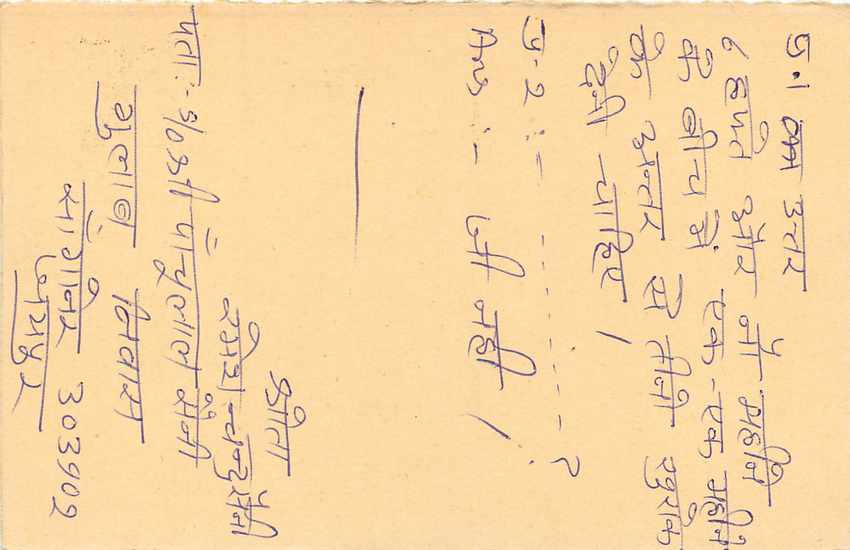 प्र.1 का उत्तर
6 हफ्ते और नौ महीने
के बीच में एक-एक महीने
के अन्तर से तीनो खुराके
देनी चाहिए।
प्र.2 :- ------?
Ans :- जी नही।
श्रोता
रमेश चन्द्र सैनी
पता:- %श्री पाँचुलाल सैनी
गुलाब निवास
सांगानेर 303902
जयपुर